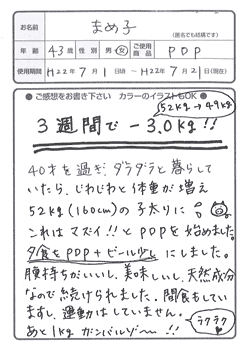 お名前 まめ子 (匿名でも結構です)
年齢 43才 性別 男・女 ご使用商品 POP
使用期間 H22年7月1日頃 ~ H22年7月21日(現在)
● ご感想をお書き下さい カラーのイラストもOK ●
52kg→49kg
3週間で-3.0kg!!
40才を過ぎ、ダラダラと暮らして
いたら、じわじわと体重が増え
52kg(160cm)の子太りに
これはマズイ!!とPOPを始めました。
夕食をPOP+ビール少しにしました。
腹持ちがいいし、美味しいし、天然成分
なので続けられました。間食もしてい
ますし、運動はしていません。
あと1kgガンバルゾ~!!!
ラクラク